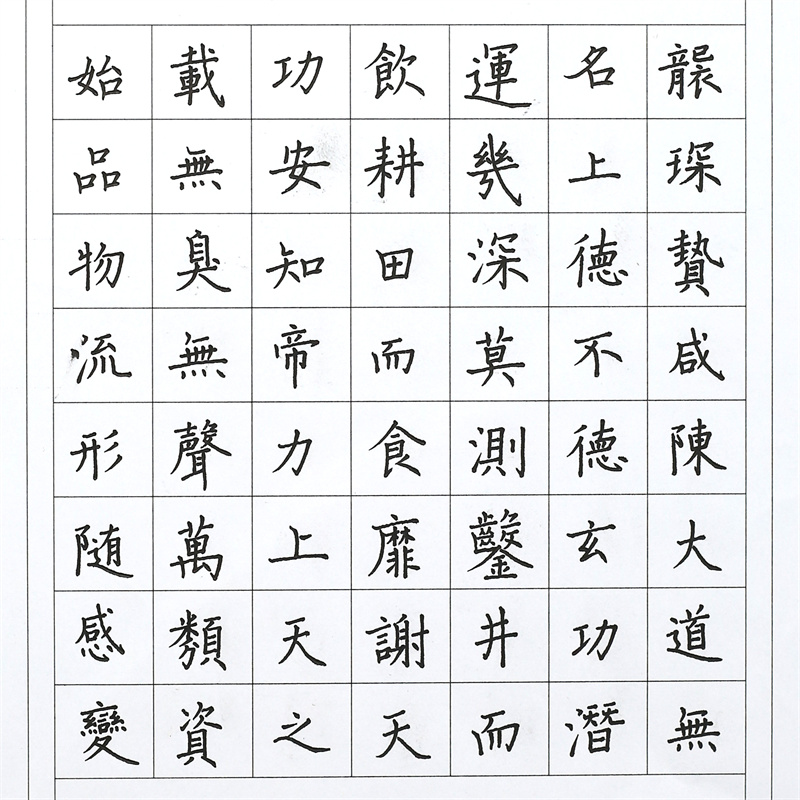 襲琛贄咸陳大道無
名上德不德玄功潛
運幾深莫測鑿井而
飲耕田而食靡謝天
功安知帝力上天之
載無臭無聲萬類資
始品物流形随感變